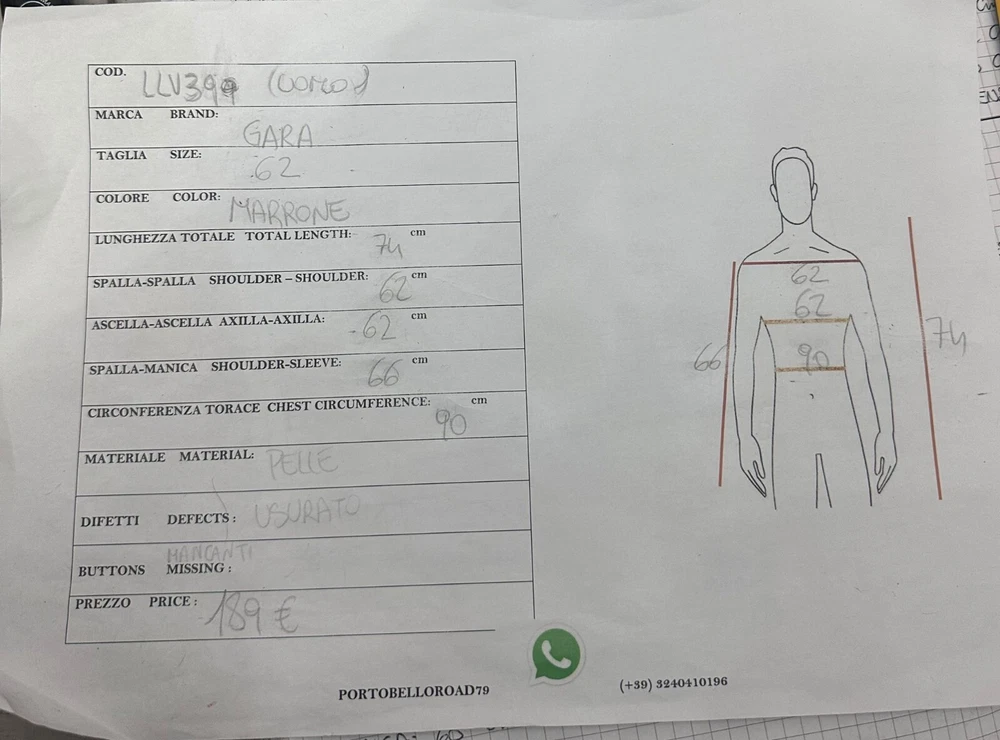 COD. LLV399 (UOMO)
MARCA BRAND: GARA
TAGLIA SIZE: 62
COLORE COLOR: MARRONE
LUNGHEZZA TOTALE TOTAL LENGTH: 74 cm
SPALLA-SPALLA SHOULDER – SHOULDER: 62 cm
ASCELLA-ASCELLA AXILLA-AXILLA: 62 cm
SPALLA-MANICA SHOULDER-SLEEVE: 66 cm
CIRCONFERENZA TORACE CHEST CIRCUMFERENCE: 90 cm
MATERIALE MATERIAL: PELLE
DIFETTI DEFECTS: USURATO
MANCANTI
BUTTONS MISSING:
PREZZO PRICE: 189 €
62
62
90
66
74
PORTOBELLOROAD79
(+39) 3240410196